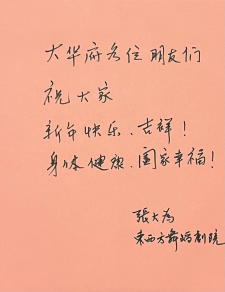 大华府各位朋友们
祝大家
新年快乐、吉祥！
身体健康、阖家幸福！
張大为
东西方舞蹈剧院